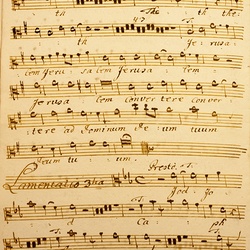 th The th the
th Jerusa
lem Jeru salem Jerusa lem
Jerusa lem convertere conver
tere ad Dominum Deum tuum
Deum tu um.
Lamentatio 3tia Presto. Ts.
Jod Jo
d Ca ph